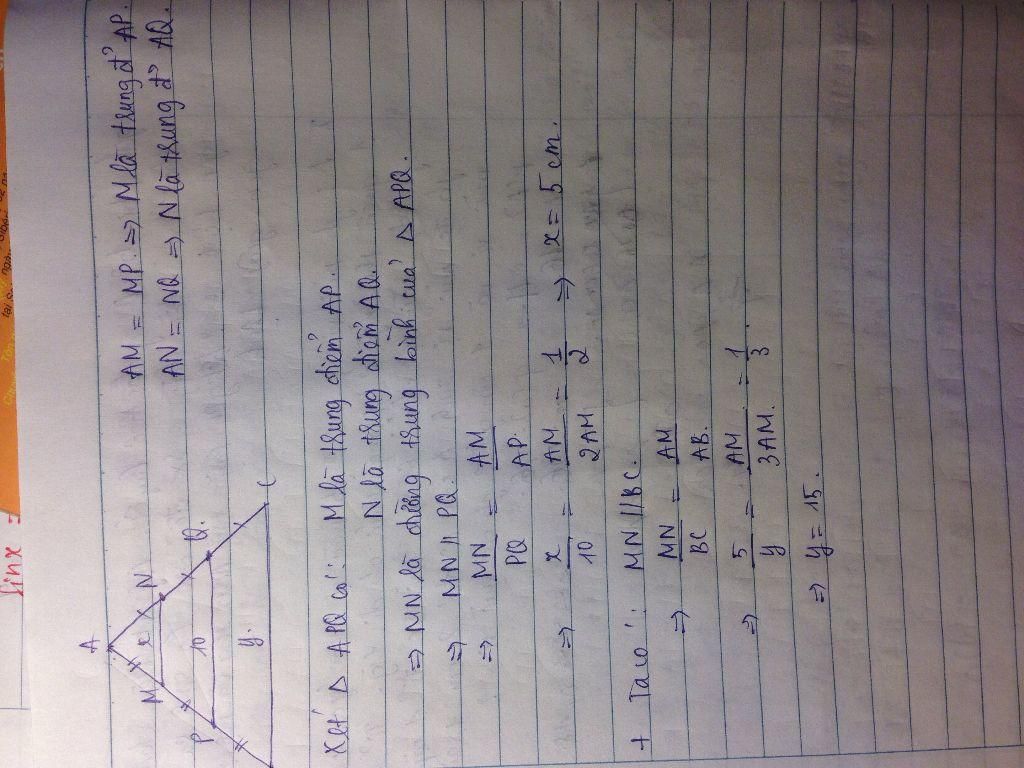 sinx =
AM = MP. ⇒ M là trung đ' AP.
AN = NQ ⇒ N là trung đ' AQ.
A
M x N
P 10 Q.
y. C
Xét Δ APQ có: M là trung điểm AP.
N là trung điểm AQ.
⇒ MN là đường trung bình của Δ APQ.
⇒ MN // PQ.
⇒ MN/PQ = AM/AP
⇒ x/10 = AM/2AM = 1/2 ⇒ x = 5 cm.
+ Ta có: MN // BC.
⇒ MN/BC = AM/AB.
⇒ 5/y = AM/3AM. = 1/3.
⇒ y = 15.